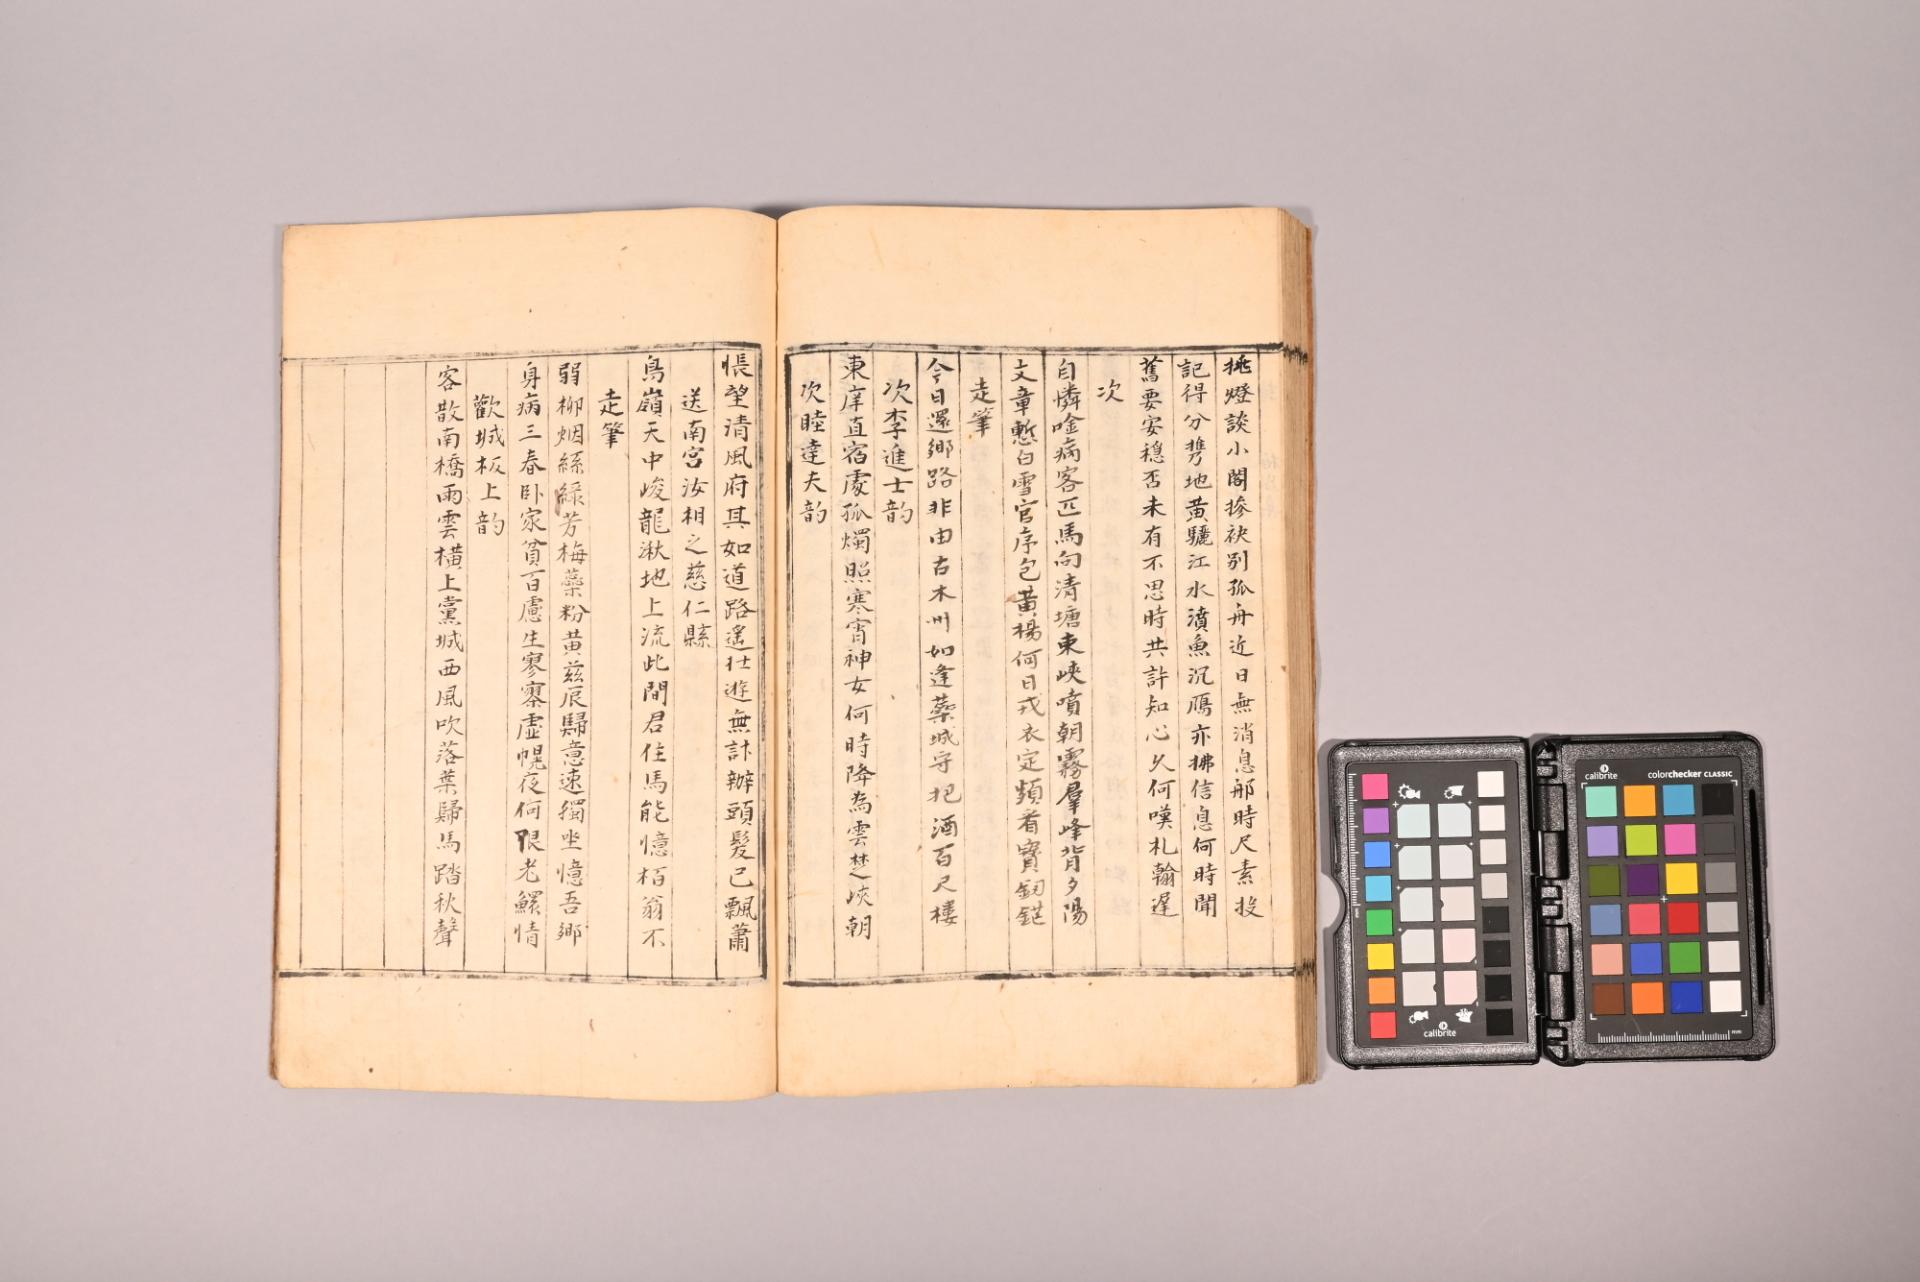 挑燈談小閣摻袂別孤舟近日無消息那時尺素投
記得分携地黃驪江水濆魚沉鴈亦拂信息何時聞
舊要安穩否未有不思時共許知心久何嘆札翰遲
次
自憐唫病客匹馬向清塘東峽噴朝霧羣峰背夕陽
文章慙白雪官序包黃楊何日戎衣定頻看寶釰鋩
走筆
今日還鄉路非由古木州如逢藥城守把酒百尺樓
次李進士韵
東庠直宿處孤燭照寒宵神女何時降為雲楚峽朝
次睦達夫韵
悵望清風府其如道路遙壯遊無計辦頭髮已飄蕭
送南宮汝相之慈仁縣
鳥嶺天中峻龍湫地上流此間君住馬能憶栢翁不
走筆
弱柳烟絲綠芳梅藥粉黃茲辰歸意速獨坐憶吾鄉
身病三春卧家貧百慮生寥寥虛幌夜何限老鰥情
歡城板上韵
客散南橋雨雲橫上黨城西風吹落葉歸馬踏秋聲
calibrite
calibrite
colorchecker CLASSIC
mm